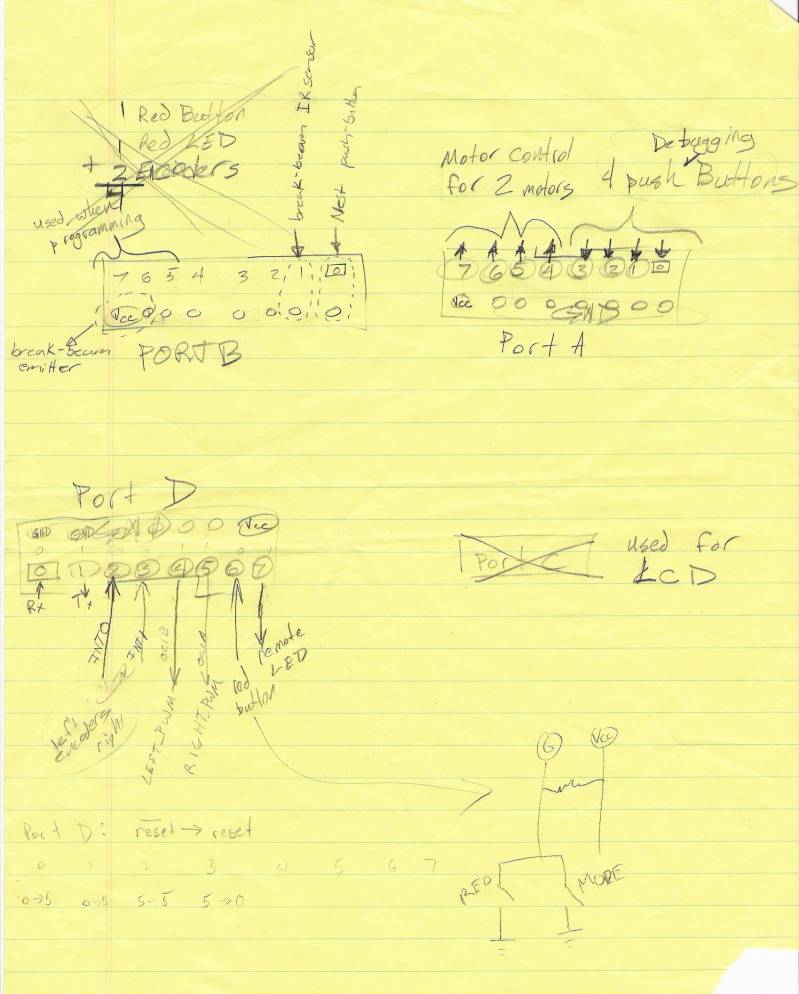 1 Red Button
1 Red LED
+ 2 Encoders
used when
programming
break-beam IR sensor
Nest push-button
7 6 5 4 3 2 1 0
Vcc
break-beam
emitter
PORT B
Motor Control
for 2 motors
Debugging
4 push Buttons
7 6 5 4 3 2 1 0
Vcc GND
Port A
Port D
GND GND Vcc
0 1 2 3 4 5 6 7
Rx Tx
INT0
INT1
OC1B
OC1A
left
encoders
right
LEFT_PWM
RIGHT_PWM
red
button
remote
LED
Port C
used for
LCD
6 Vcc
RED MORE
Port D: reset → reset
0 1 2 3 4 5 6 7
0→5 0→5 5→5 5→0